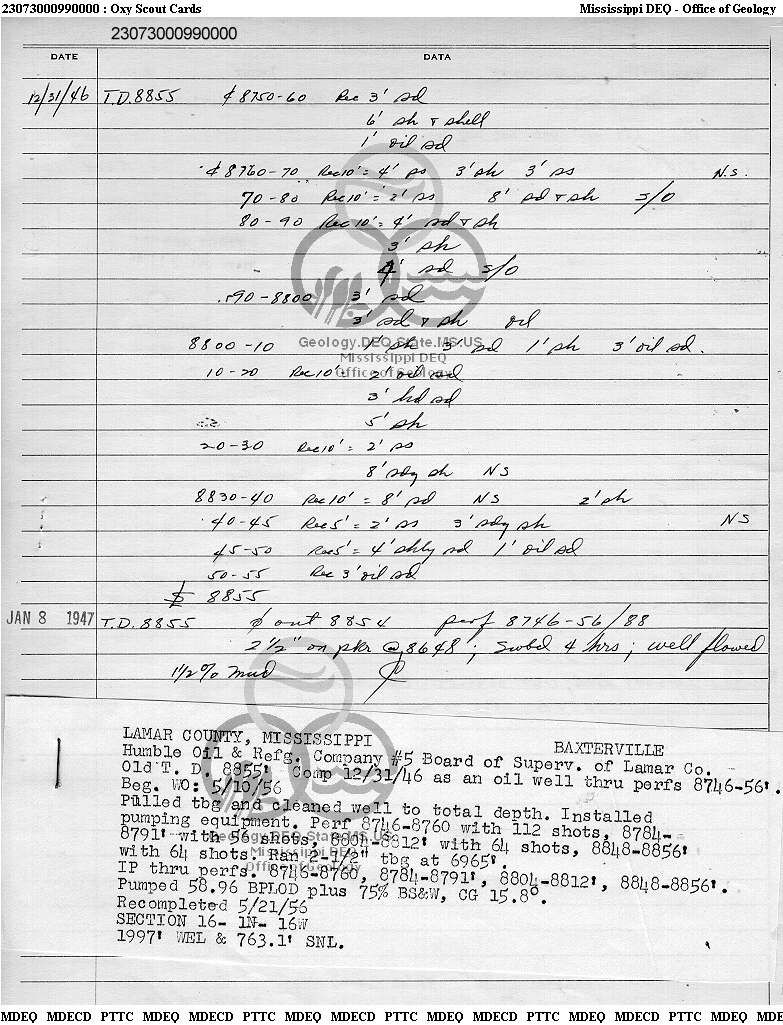 23073000990000 : Oxy Scout Cards Mississippi DEQ - Office of Geology
23073000990000
DATE DATA
12/31/46 T.D. 8855 ¢ 8750-60 Rec 3' sd
6' sh & shell
1' oil sd
¢ 8760-70 Rec 10' = 4' ss 3' sh 3' ss N.S.
70-80 Rec 10' = 2' ss 8' sd & sh S/O
80-90 Rec 10' = 4' sd & sh
3' sh
4' sd S/O
90-8800 3' sd
3' sd & sh oil
8800-10 sh 3' sd 1' sh 3' oil sd.
10-20 Rec 10' 2' oil sd
3' hd sd
5' sh
20-30 Rec 10' = 2' ss
8' sdy sh NS
8830-40 Rec 10' = 8' sd NS 2' sh
40-45 Rec 5' = 2' ss 3' sdy sh NS
45-50 Rec 5' = 4' shly sd 1' oil sd
50-55 Rec 3' oil sd
8855
JAN 8 1947 T.D. 8855 out 8854 perf 8746-56/88
2 1/2" on pkr @ 8648'; swbd 4 hrs; well flowed
1/2% mud
Geology.DEQ.State.MS.US
Mississippi DEQ
Office of Geology
LAMAR COUNTY, MISSISSIPPI BAXTERVILLE
Humble Oil & Refg. Company #5 Board of Superv. of Lamar Co.
Old T. D. 8855' Comp 12/31/46 as an oil well thru perfs 8746-56'.
Beg. WO: 5/10/56
Pulled tbg and cleaned well to total depth. Installed
pumping equipment. Perf 8746-8760 with 112 shots, 8784-
8791' with 56 shots, 8804-8812' with 64 shots, 8848-8856'
with 64 shots. Ran 2-1/2" tbg at 6965'.
IP thru perfs. 8746-8760, 8784-8791', 8804-8812', 8848-8856'.
Pumped 58.96 BPLOD plus 75% BS&W, CG 15.8°.
Recompleted 5/21/56
SECTION 16- 1N- 16W
1997' WEL & 763.1' SNL.
Geology.DEQ.State.MS.US
Mississippi DEQ
Office of Geology
MDEQ MDECD PTTC MDEQ MDECD PTTC MDEQ MDECD PTTC MDEQ MDECD PTTC MDEQ MDECD PTTC MDEQ MDE